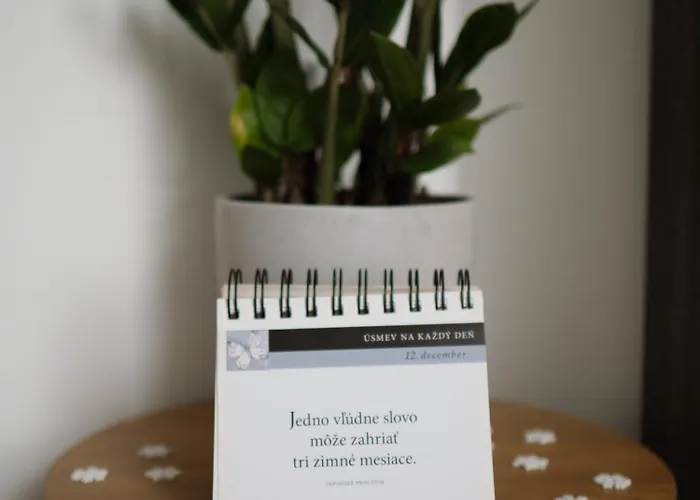 ÚSMEV NA KAŽDÝ DEŇ
12. december
Jedno vľúdne slovo
môže zahriať
tri zimné mesiace.
JAPONSKÉ PRÍSLOVIE